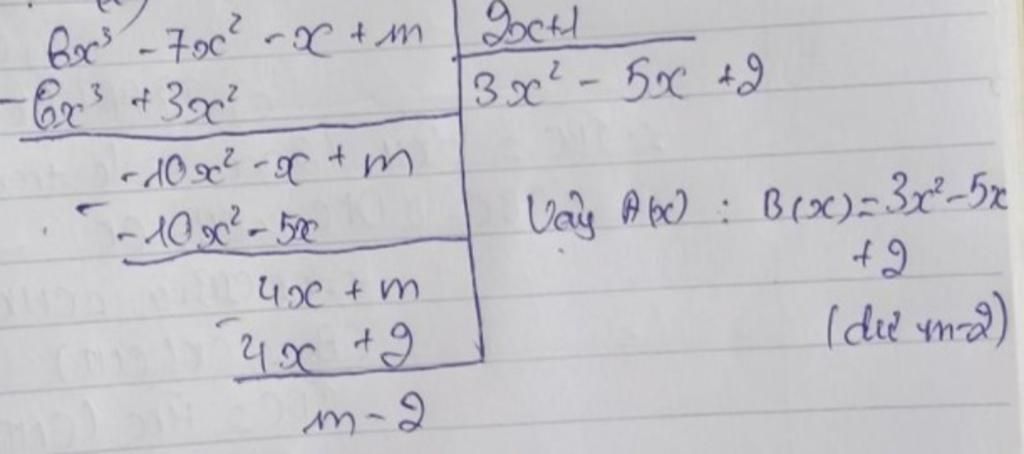 6x³ - 7x² - x + m
2x+1
- 6x³ + 3x²
3x² - 5x + 2
-10x² - x + m
- -10x² - 5x
4x + m
- 4x + 2
m - 2
Vậy A(x) : B(x) = 3x² - 5x
+ 2
(dư m-2)